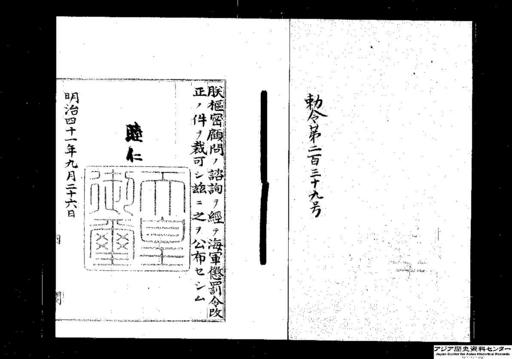 勅令第二百三十九号
朕樞密顧問ノ諮詢ヲ經テ海軍懲罰令改
正ノ件ヲ裁可シ茲ニ之ヲ公布セシム
睦仁
天皇御璽
明治四十一年九月二十六日
内閣
アジア歴史資料センター
Japan Center for Asian Historical Records